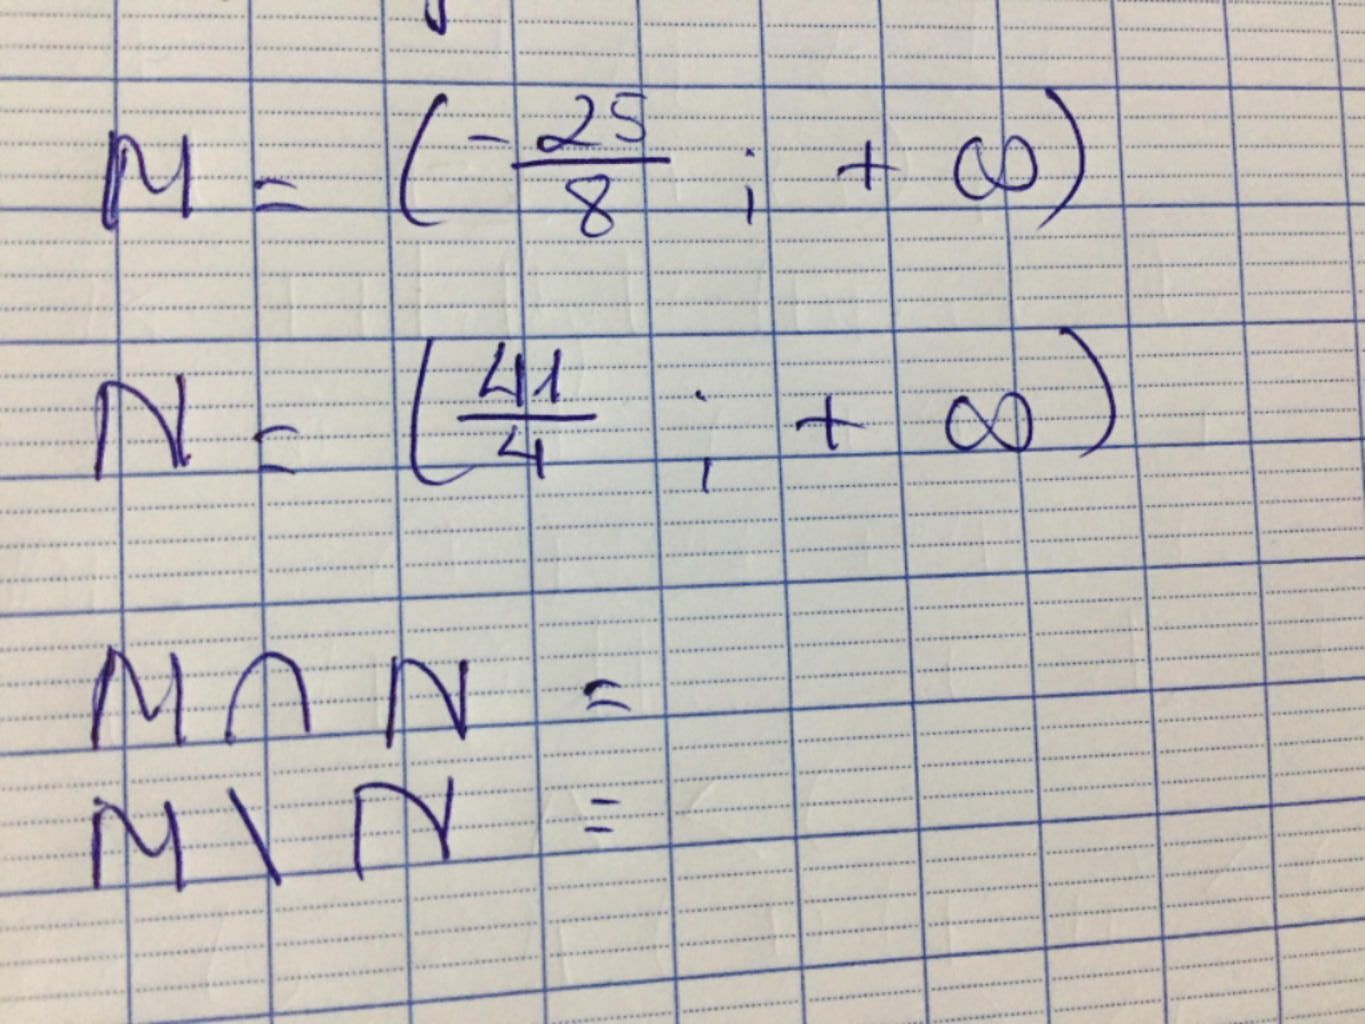 M = (-25/8 ; + ∞)
N = (41/4 ; + ∞)
M ∩ N =
M \ N =